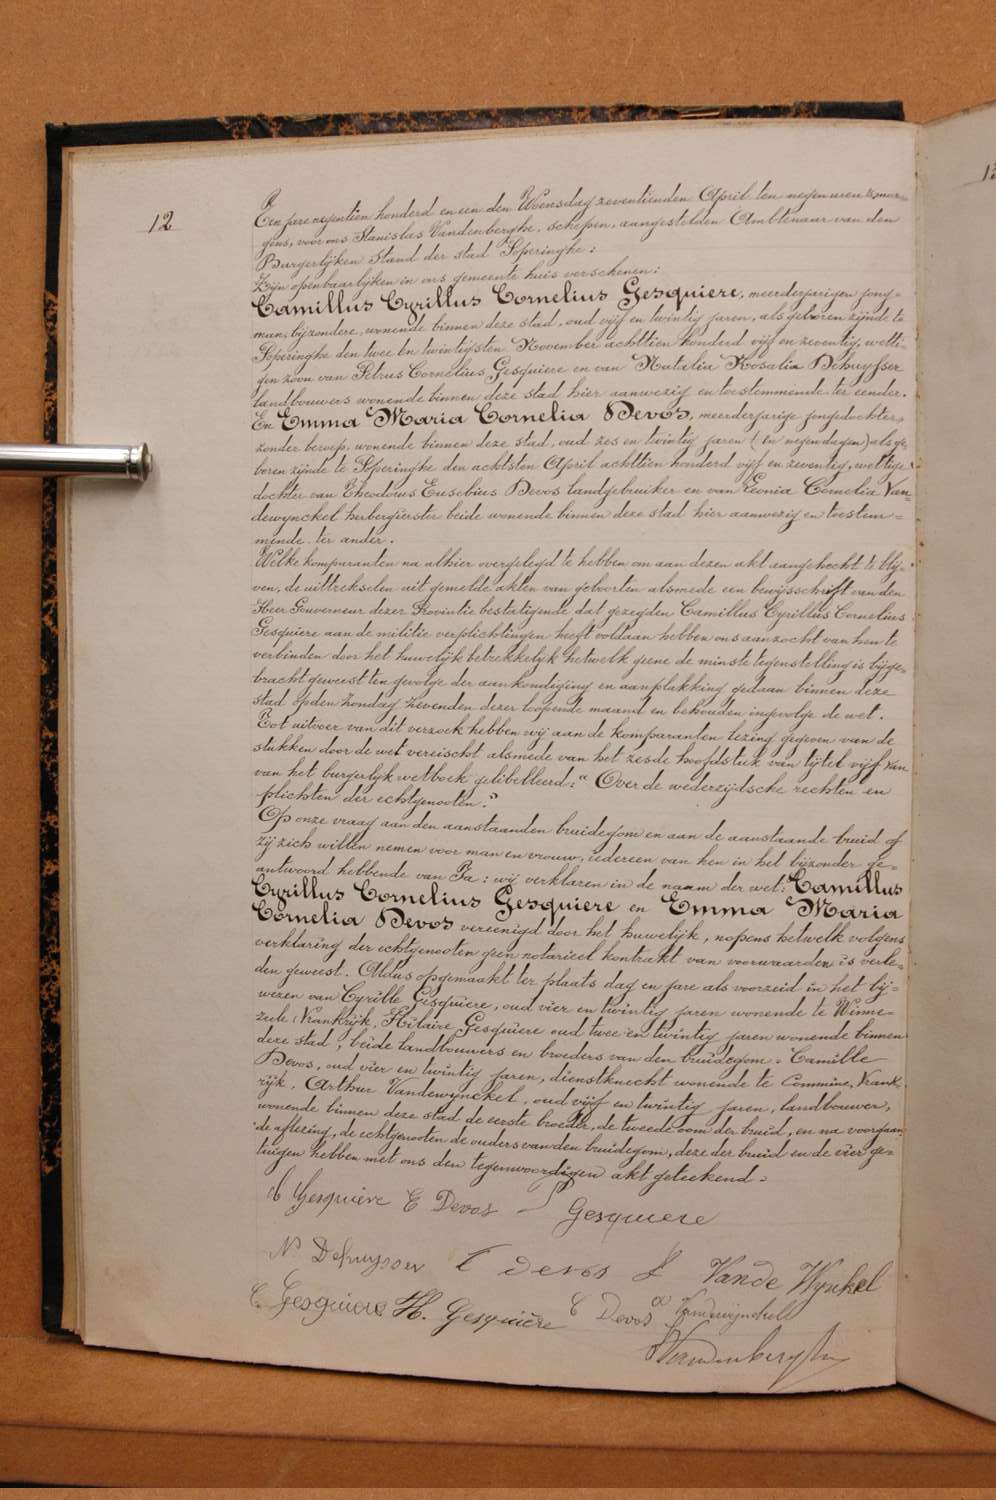 12
Ten jare negentien honderd en een den Woensdag zeventienden April ten negen uren 's mor-
gens, voor ons Stanislas Vandenberghe, schepen, aangestelden Ambtenaar van den
Burgerlijken Stand der stad Poperinghe:
Zijn openbaarlijken in ons gemeente huis verschenen:
Camillus Cyrillus Cornelius Gesquiere, meerderjarigen jong-
man, bijzondere, wonende binnen deze stad, oud vijf en twintig jaren, als geboren zijnde te
Poperinghe den twee en twintigsten November achttien honderd vijf en zeventig, wetti-
gen zoon van Petrus Cornelius Gesquiere en van Natalia Rosalia Dehuysser
landbouwers wonende binnen deze stad hier aanwezig en toestemmende ter eender.
En Emma Maria Cornelia Devos, meerderjarige jongedochter,
zonder beroep, wonende binnen deze stad, oud zes en twintig jaren (en negen dagen) als ge-
boren zijnde te Poperinghe den achtsten April achttien honderd vijf en zeventig, wettige
dochter van Theodorus Eusebius Devos landgebruiker en van Leonia Cornelia Van-
dewynckel herbergierster beide wonende binnen deze stad hier aanwezig en toestem-
mende ter ander.
Welke komparanten na alhier overgelegd te hebben om aan dezen akt aangehecht te blij-
ven, de uittrekselen uit gemelde akten van geboorten alsmede een bewijsschrift van den
Heer Gouverneur dezer Provintie bestatigende dat gezegden Camillus Cyrillus Cornelius
Gesquiere aan de militie verplichtingen heeft voldaan hebben ons aanzocht van hen te
verbinden door het huwelijk betrekkelijk hetwelk geene de minste tegenstelling is bijge-
bracht geweest ten gevolge der aankondiging en aanplakking gedaan binnen deze
stad op den Zondag zevenden dezer loopende maand en behouden ingevolge de wet.
Tot uitvoer van dit verzoek hebben wij aan de komparanten lezing gegeven van de
stukken door de wet vereischt alsmede van het zesde hoofdstuk van tijtel vijf van
van het burgerlijk wetboek gelibelleerd: "Over de wederzijdsche rechten en
plichten der echtgenooten."
Op onze vraag aan den aanstaanden bruidegom en aan de aanstaande bruid of
zij zich willen nemen voor man en vrouw, iedereen van hen in het bijzonder ge-
antwoord hebbende van Ja: wij verklaren in de naam der wet: Camillus
Cyrillus Cornelius Gesquiere en Emma Maria
Cornelia Devos vereenigd door het huwelijk, nopens hetwelk volgens
verklaring der echtgenooten geen notarieel kontrakt van voorwaarden is verle-
den geweest. Aldus opgemaakt ter plaats dag en jare als voorzeid in het bij-
wezen van Cyrille Gesquiere, oud vier en twintig jaren wonende te Winne-
zeele (Vrankrijk, Hilaire Gesquiere oud twee en twintig jaren wonende binnen
deze stad, beide landbouwers en broeders van den bruidegom. Camille
Devos, oud vier en twintig jaren, dienstknecht wonende te Commine, Vrank-
rijk. Arthur Vandewynckel, oud vijf en twintig jaren, landbouwer,
wonende binnen deze stad de eerste broeder, de tweede oom der bruid, en na voorgaan-
de aflezing, de echtgenooten de ouders van den bruidegom, deze der bruid en de vier ge-
tuigen hebben met ons den tegenwoordigen akt geteekend.
C Gesquière E Devos P Gesquiere
N Dehuysser T devos L Vande Wynkel
C. Gesquiere H. Gesquière C Devos a Vandewynckell
Vandenberghe